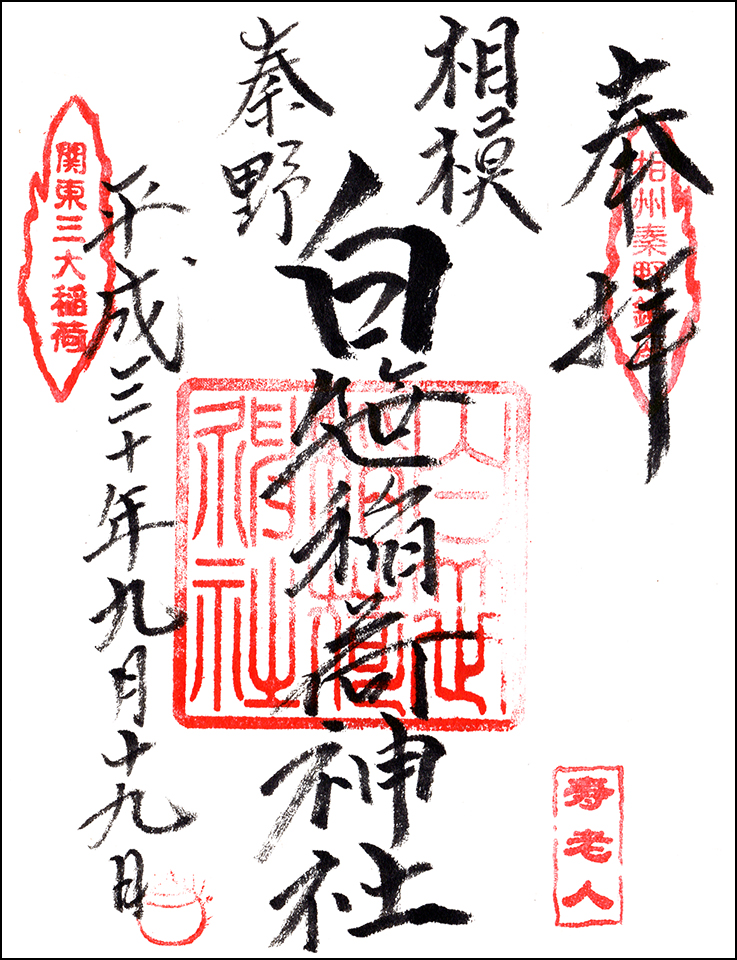 奉拝
相州秦野鎮座
相模
秦野
白笹稲荷神社
白笹稲荷神社
平成三十年九月十九日
関東三大稲荷
寿老人